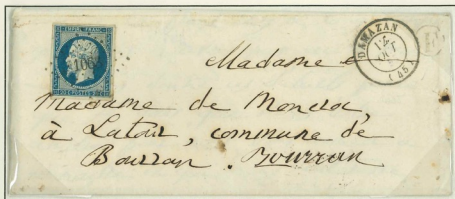 EMPIRE FRANC
POSTES
DAMAZAN
(45)
Madame
Madame de Moncla,
à Latour, commune de
Bourran. Bourran